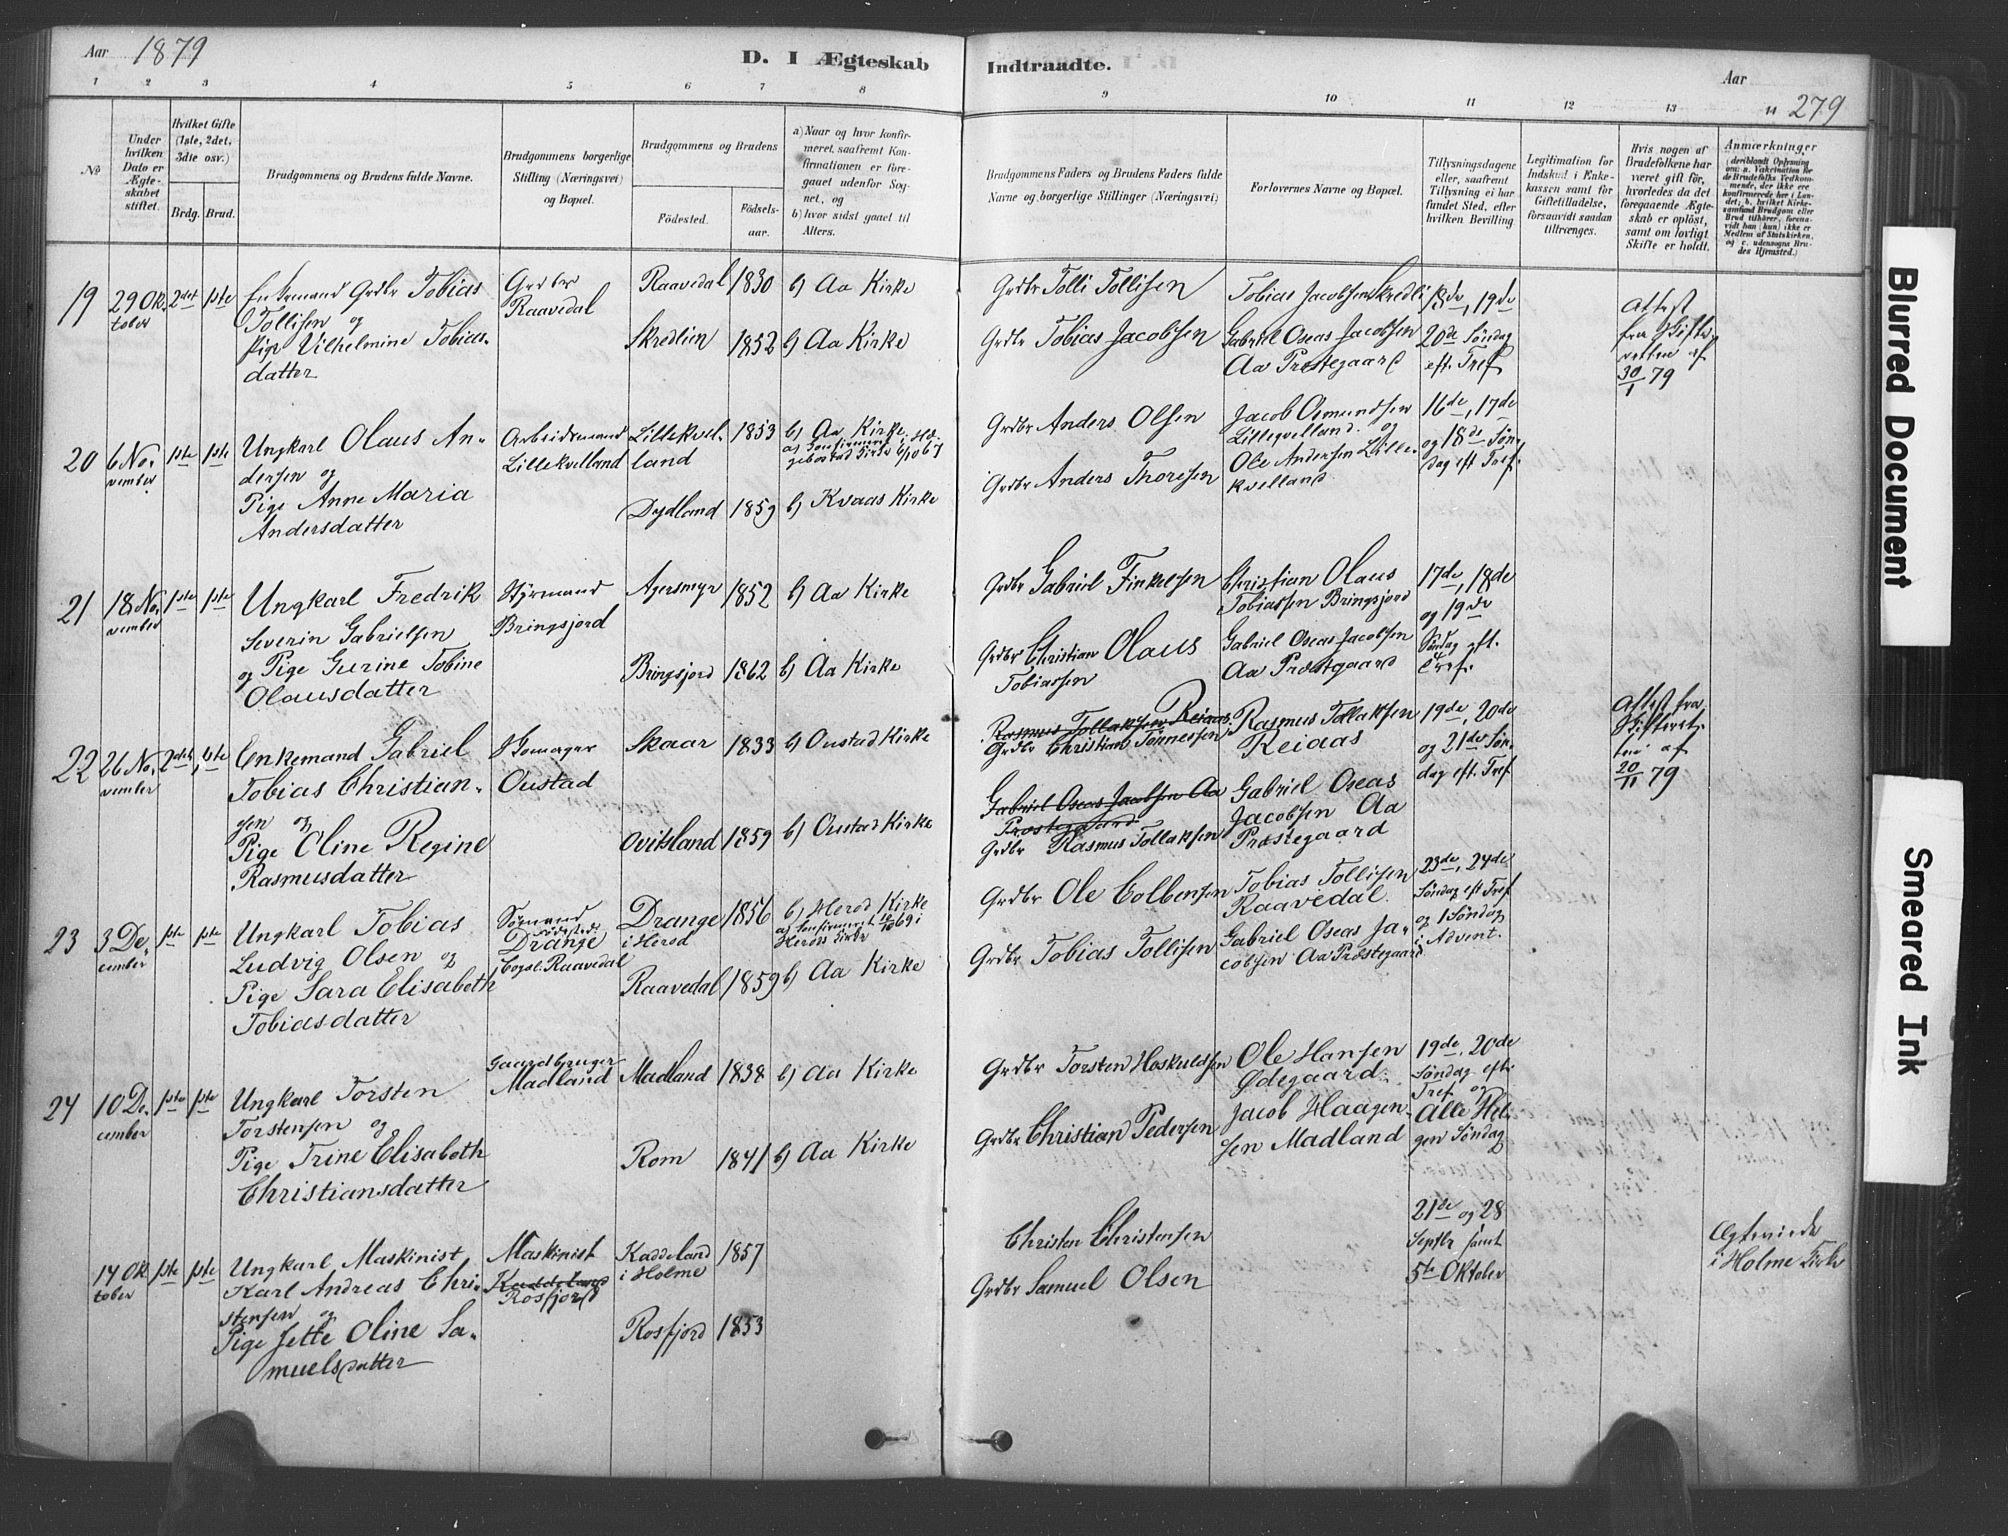 Aar 1879
D. I Ægteskab Indtraadte.
Aar
279
1 2 3 4 5 6 7 8 9 10 11 12 13 14
No
Under hvilken Dato er Ægteskabet stiftet.
Hvilket Gifte (1ste, 2det, 3die osv.)
Brdg. Brud.
Brudgommens og Brudens fulde Navne.
Brudgommens borgerlige Stilling (Næringsvei) og Bopæl.
Brudgommens og Brudens
Födested.
Födselsaar.
a) Naar og hvor konfirmeret, saafremt Konfirmationen er foregaaet udenfor Sognet, og
b) hvor sidst gaaet til Alters.
Brudgommens Faders og Brudens Faders fulde Navne og borgerlige Stillinger (Næringsvei)
Forlovernes Navne og Bopæl.
Tillysningsdagene eller, saafremt Tillysning ei har fundet Sted, efter hvilken Bevilling
Legitimation for Indskud i Enkekassen samt for Giftetilladelse, forsaavidt saadan tiltrænges.
Hvis nogen af Brudefolkene har været gift för, hvorledes da det foregaaende Ægteskab er oplöst, samt om lovligt Skifte er holdt.
Anmærkninger
19 29 Oktober 2det 1ste
Enkemand Grdbr Tobias
Tollisen og
Pige Vilhelmine Tobias-
datter
Grdbr
Raavedal
Raavedal 1830 b) Aa Kirke
Skredlien 1852 b) Aa Kirke
Grdbr Tolli Tollisen
Grdbr Tobias Jacobsen
Tobias Jacobsen Skredli
Gabriel Oseas Jacobsen
Aa Prestegaard
18de, 19de
20de Söndag
eft. Tref
Attest
fra Skifte-
retten af
30/1 79
20 6 November 1ste 1ste
Ungkarl Olaus An-
dersen og
Pige Anne Maria
Andersdatter
Arbeidsmand
Lillekvelland
Lillekvel-
land 1853
b) Aa Kirke
a) konfirmeret i Hæ-
gebostad Kirke 6/10 67
Dydland 1859 b) Kvaas Kirke
Grdbr Anders Olsen
Grdbr Anders Thoresen
Jacob Osmundsen
Lillekvelland og
Ole Andersen Lille-
kvelland
16de, 17de
og 18de Sön-
dag eft Tref.
21 18 November 1ste 1ste
Ungkarl Fredrik
Severin Gabrielsen
og Pige Gurine Tobine
Olausdatter
Styrmand
Bringsjord
Agersmyr 1852 b) Aa Kirke
Bringsjord 1862 b) Aa Kirke
Grdbr Gabriel Finkelsen
Grdbr Christian Olaus
Tobiassen
Christian Olaus
Tobiassen Bringsjord
Gabriel Oseas Jacobsen
Aa Præstgaard
17de, 18de
og 19de
Söndag eft.
Tref.
22 26 November 2det 1ste
Enkemand Gabriel
Tobias Christian-
sen og
Pige Oline Regine
Rasmusdatter
Skomager
Oustad
Skaar 1833 b) Oustad Kirke
Ovitsland 1859 b) Oustad Kirke
Rasmus Tollaksen Reiaas
Grdbr Christian Tönnessen
Gabriel Oseas Jacobsen Aa
Prestegaard
Grdbr Rasmus Tollaksen
Rasmus Tollaksen
Reiaas
Gabriel Oseas
Jacobsen Aa
Præstegaard
19de, 20de
og 21de Sön-
dag eft. Tref
Attest fra
Skifteret-
ten af
20/11 79
23 3 December 1ste 1ste
Ungkarl Tobias
Ludvig Olsen og
Pige Sara Elisabeth
Tobiasdatter
Sömand
Drange
Raavedal
Drange
i Herod 1856
b) Herod Kirke
a) konfirmeret 69 i
Herods Kirke
Raavedal 1859 b) Aa Kirke
Grdbr Ole Colbensen
Grdbr Tobias Tollisen
Tobias Tollisen
Raavedal.
Gabriel Oseas Ja-
cobsen Aa Præstegaard
23de, 24de
Söndag eft Tref
og 1 Söndag
i Advent.
24 10 December 1ste 1ste
Ungkarl Torsten
Torstensen og
Pige Trine Elisabeth
Christiansdatter
Gaardbruger
Madland
Madland 1838 b) Aa Kirke
Rom 1841 b) Aa Kirke
Grdbr Torsten Hoskuldsen
Grdbr Christian Pedersen
Ole Hansen
Ödegaard.
Jacob Haagen-
sen Madland
19de, 20de
Söndag eft.
Tref og
Alle Hel-
gen Söndag
14 Oktober 1ste 1ste
Ungkarl Maskinist
Karl Andreas Chri-
stensen og
Pige Jette Oline Sa-
muelsdatter
Maskinist
Kaddeland
Rosfjord
Kaddeland
i Holme 1857
Rosfjord 1853
Christen Christensen
Grdbr Samuel Olsen
21de og 28
Septbr samt
5te Oktober
Ægteviede
i Holme Kirke
Blurred Document
Smeared Ink